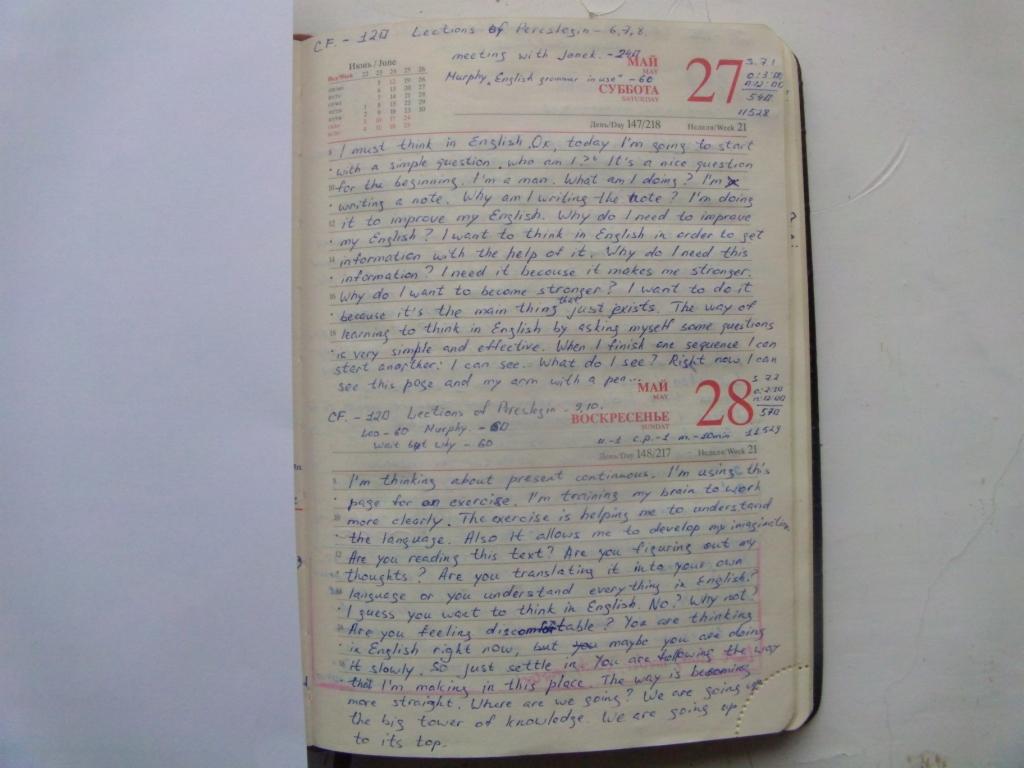 CF. - 120 Lections of Pereslegin - 6,7,8.
meeting with Janek. - 240
Murphy „English grammar in use" - 60
Июнь / June
МАЙ
MAY
27
СУББОТА
SATURDAY
S. 71
540
11528
День/Day 147/218 Неделя/Week 21
I must think in English. Ok, today I'm going to start
with a simple question „who am I?" It's a nice question
for the beginning. I'm a man. What am I doing? I'm
writing a note. Why am I writing the note? I'm doing
it to improve my English. Why do I need to improve
my English? I want to think in English in order to get
information with the help of it. Why do I need this
information? I need it because it makes me stronger.
Why do I want to become stronger? I want to do it
because it's the main thing that just exists. The way of
learning to think in English by asking myself some questions
is very simple and effective. When I finish one sequence I can
start another: I can see. What do I see? Right now I can
see this page and my arm with a pen...
МАЙ
MAY
28
ВОСКРЕСЕНЬЕ
SUNDAY
S. 72
570
11529
CF. - 120 Lections of Pereslegin - 9,10.
Murphy. - 60
Wait but why - 60
День/Day 148/217 Неделя/Week 21
I'm thinking about present continuous. I'm using this
page for an exercise. I'm training my brain to work
more clearly. The exercise is helping me to understand
the language. Also It allows me to develop my imagination
Are you reading this text? Are you figuring out my
thoughts? Are you translating it into your own
language or you understand everything in English?
I guess you want to think in English. No? Why not?
Are you feeling discomfortable? You are thinking
in English right now, but you maybe you are doing
it slowly. So just settle in. You are following the way
that I'm making in this place. The way is becoming
more straight. Where are we going? We are going up
the big tower of knowledge. We are going up
to its top.